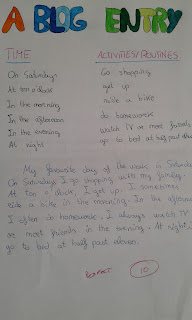 A BLOG ENTRY
TIME ACTIVITIES/ROUTINES
On Saturdays Go shopping
At ten o'clock get up
In the morning ride a bike
In the afternoon do homework
In the evening watch TV or meet friends
At night go to bed at half past eleven
My favourite day of the week is Saturday.
On Saturdays I go shopping with my family.
At ten o'clock, I get up. I sometimes
ride a bike in the morning. In the afternoon
I often do homework. I always watch TV
or meet friends in the evening. At night
go to bed at half past eleven.
10